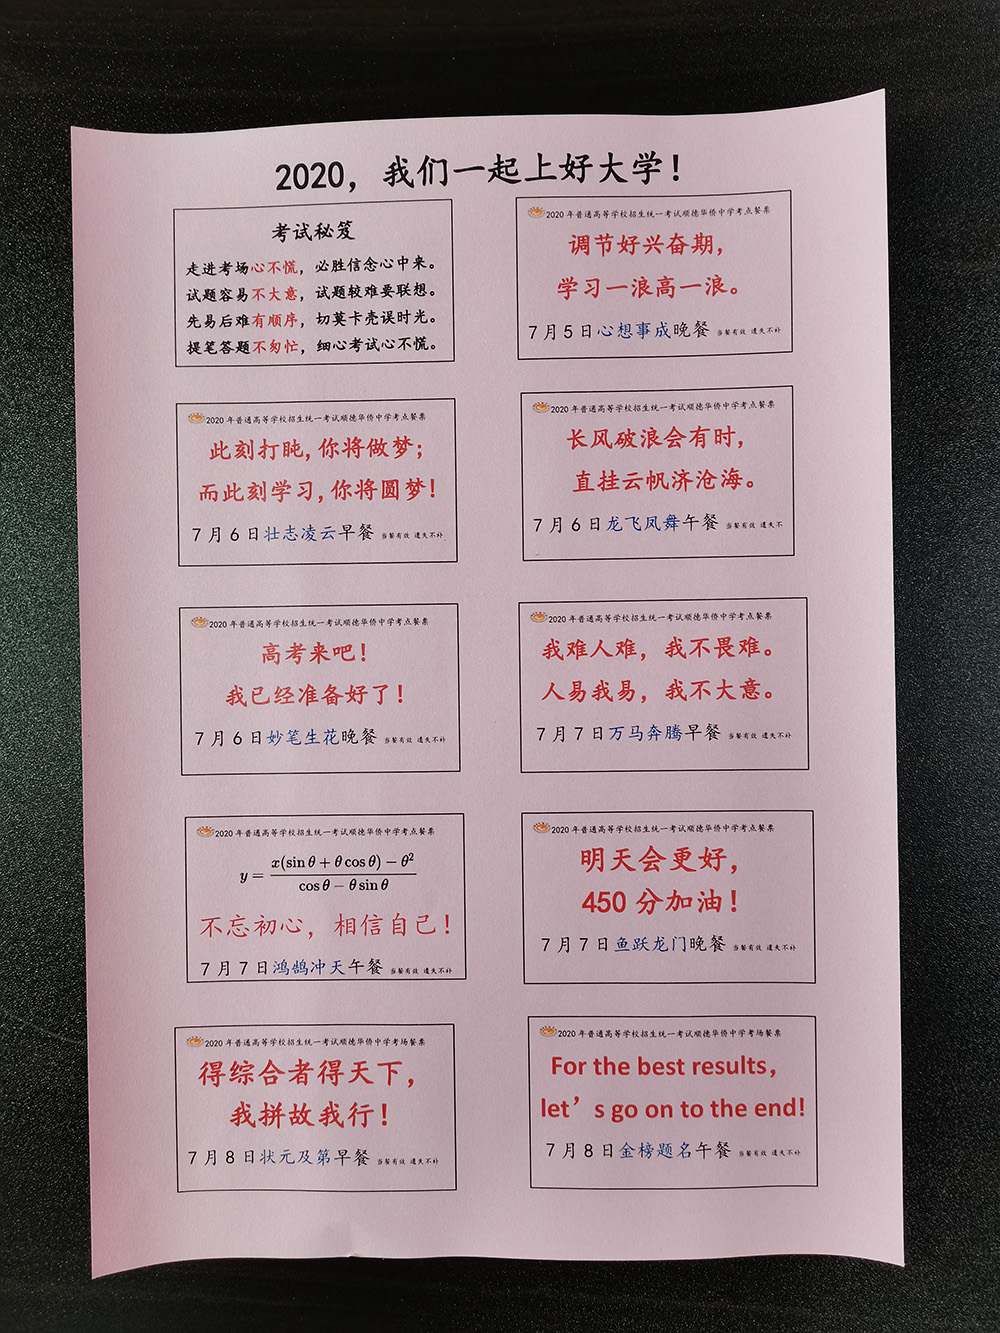 2020，我们一起上好大学！
考试秘笈
走进考场心不慌，必胜信念心中来。
试题容易不大意，试题较难要联想。
先易后难有顺序，切莫卡壳误时光。
提笔答题不匆忙，细心考试心不慌。
2020年普通高等学校招生统一考试顺德华侨中学考点餐票
调节好兴奋期，
学习一浪高一浪。
7月5日心想事成晚餐 当餐有效 遗失不补
2020年普通高等学校招生统一考试顺德华侨中学考点餐票
此刻打盹，你将做梦；
而此刻学习，你将圆梦！
7月6日壮志凌云早餐 当餐有效 遗失不补
2020年普通高等学校招生统一考试顺德华侨中学考点餐票
长风破浪会有时，
直挂云帆济沧海。
7月6日龙飞凤舞午餐 当餐有效 遗失不
2020年普通高等学校招生统一考试顺德华侨中学考点餐票
高考来吧！
我已经准备好了！
7月6日妙笔生花晚餐 当餐有效 遗失不补
2020年普通高等学校招生统一考试顺德华侨中学考点餐票
我难人难，我不畏难。
人易我易，我不大意。
7月7日万马奔腾早餐 当餐有效 遗失不补
2020年普通高等学校招生统一考试顺德华侨中学考点餐票
y = x(sin θ + θ cos θ) − θ² / cos θ − θ sin θ
不忘初心，相信自己！
7月7日鸿鹄冲天午餐 当餐有效 遗失不补
2020年普通高等学校招生统一考试顺德华侨中学考点餐票
明天会更好，
450分加油！
7月7日鱼跃龙门晚餐 当餐有效 遗失不补
2020年普通高等学校招生统一考试顺德华侨中学考场餐票
得综合者得天下，
我拼故我行！
7月8日状元及第早餐 当餐有效 遗失不补
2020年普通高等学校招生统一考试顺德华侨中学考场餐票
For the best results，
let’s go on to the end!
7月8日金榜题名午餐 当餐有效 遗失不补